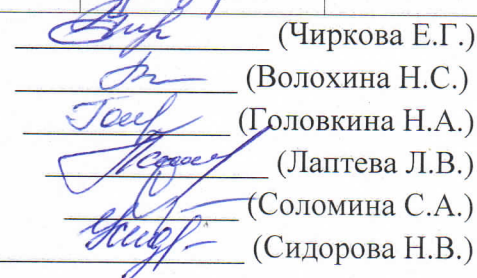 (Чиркова Е.Г.)
(Волохина Н.С.)
(Головкина Н.А.)
(Лаптева Л.В.)
(Соломина С.А.)
(Сидорова Н.В.)